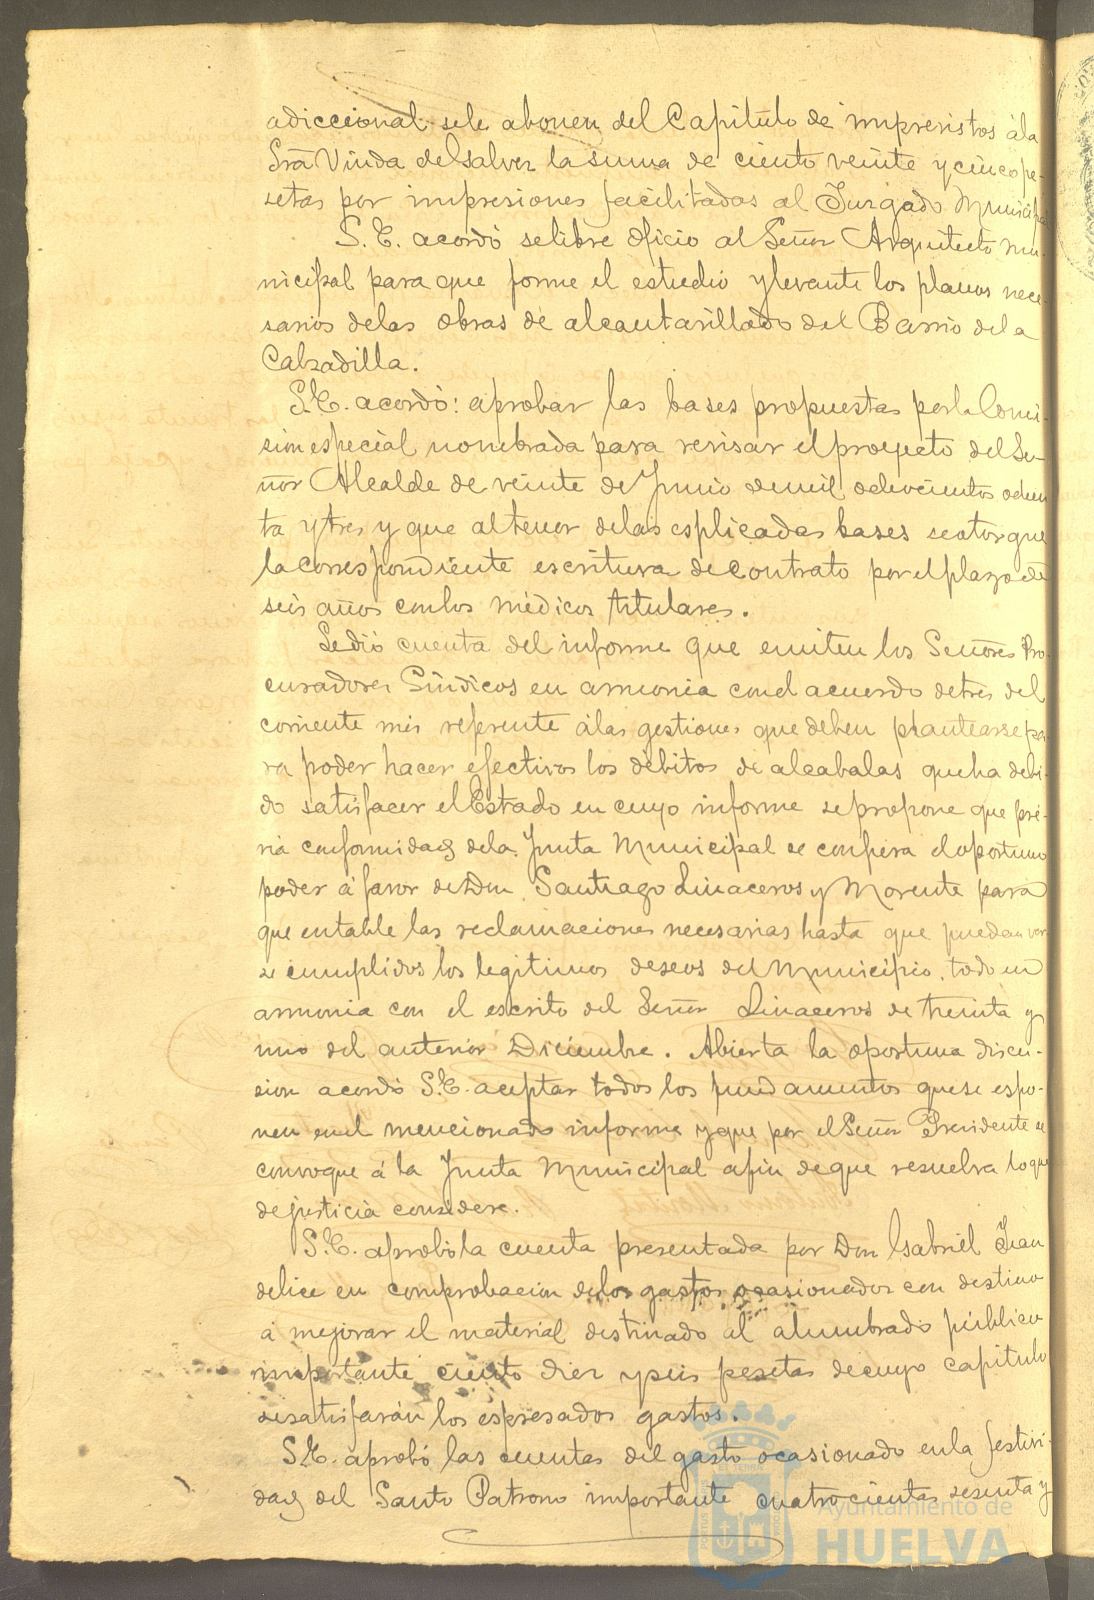 adiccional se le abonen del Capitulo de imprevistos á la
Srã Viuda del salver la suma de ciento veinte y cinco pe-
setas por impresiones facilitadas al Juzgado Municipal
S. E. acordó se libre oficio al Señor Arquitecto mu-
nicipal para que forme el estudio y levante los planos nece-
sarios de las obras de alcantarillado del Barrio de la
Calzadilla.
S. E. acordó: aprobar las bases propuestas por la Comi-
sion especial nombrada para revisar el proyecto del Se-
ñor Alcalde de veinte de Junio de mil ochocientos ochen
ta y tres y que al tenor de las esplicadas bases se otorgue
la correspondiente escritura de contrato por el plazo de
seis años con los médicos titulares.
Se dió cuenta del informe que emiten los Señores Pro-
curadores Sindicos en armonia con el acuerdo de tres del
corriente mes referente á las gestiones que deben plantearse pa-
ra poder hacer efectivos los débitos de alcabalas que ha debi-
do satisfacer el Estado en cuyo informe se propone que pré-
via conformidad de la Junta Municipal se confiera el oportuno
poder á favor de Don Santiago Linaceros y Morente para
que entable las reclamaciones necesarias hasta que puedan ver
se cumplidos los legitimos deseos del Municipio, todo en
armonia con el escrito del Señor Linaceros de treinta y
uno del anterior Diciembre. Abierta la oportuna discu-
sion acordó S. E. aceptar todos los fundamentos que se espo-
nen en el mencionado informe y que por el Señor Presidente se
convoque á la Junta Municipal afin de que resuelva lo que
de justicia considere.
S. E. aprobó la cuenta presentada por Don Gabriel
en comprobacion de los gastos ocasionados con destino
á mejorar el material destinado al alumbrado público
importante ciento diez y seis pesetas de cuyo capitulo
se satisfarán los espresados gastos.
S. E. aprobó las cuentas del gasto ocasionado en la festivi-
dad del Santo Patrono importante cuatrocientas sesenta y
Ayuntamiento de
HUELVA